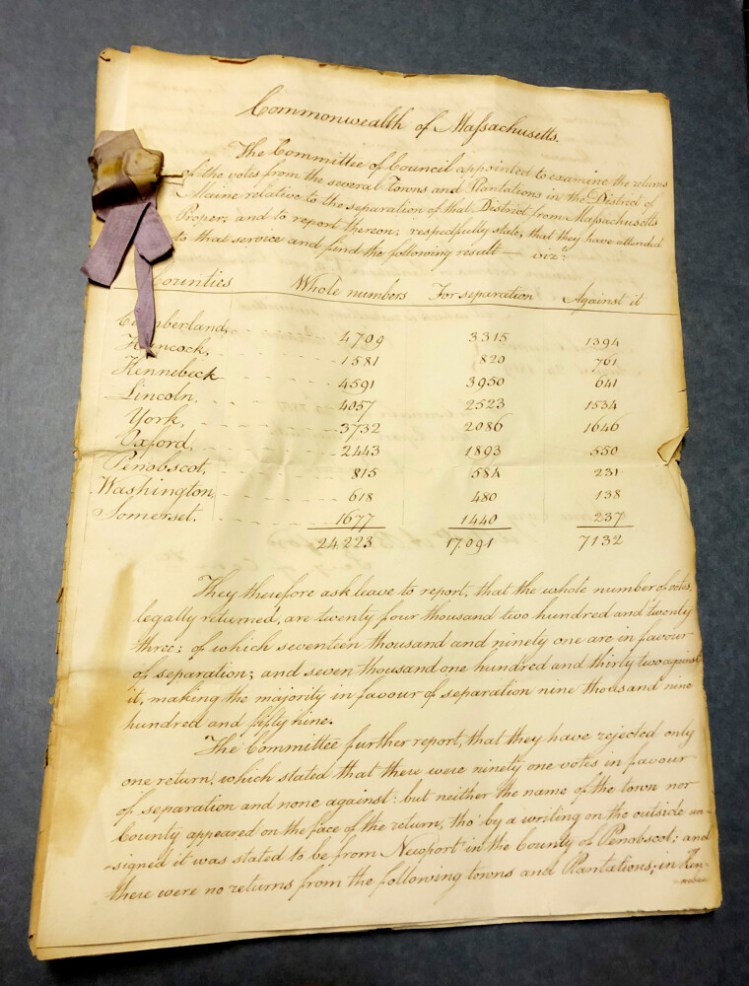 Commonwealth of Massachusetts.
The Committee of Council appointed to examine the returns
of the votes from the several towns and Plantations in the District of
Maine relative to the separation of that District from Massachusetts
Proper, and to report thereon, respectfully state, that they have attended
to that service and find the following result — viz:
Counties Whole numbers For separation Against it
Cumberland, 4709 3315 1394
Hancock, 1581 820 761
Kennebeck 4591 3950 641
Lincoln, 4057 2523 1534
York, 3732 2086 1646
Oxford, 2443 1893 550
Penobscot, 815 584 231
Washington, 618 480 138
Somerset. 1677 1440 237
24,223 17,091 7132
They therefore ask leave to report, that the whole number of votes,
legally returned, are twenty four thousand two hundred and twenty
three; of which seventeen thousand and ninety one are in favour
of separation; and seven thousand one hundred and thirty two against
it, making the majority in favour of separation nine thousand nine
hundred and fifty nine.
The Committee further report, that they have rejected only
one return, which stated that there were ninety one votes in favour
of separation and none against: but neither the name of the town nor
County appeared on the face of the return, tho' by a writing on the outside un-
-signed it was stated to be from Newport in the County of Penobscot; and
there were no returns from the following towns and Plantations; in Ken-